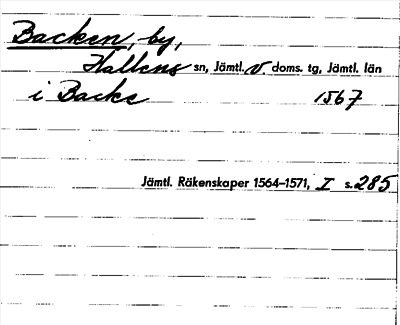 Backen, by,
Hallens sn, Jämtl. V. doms. tg, Jämtl. län
i Backe 1567
Jämtl. Räkenskaper 1564–1571, I s. 285